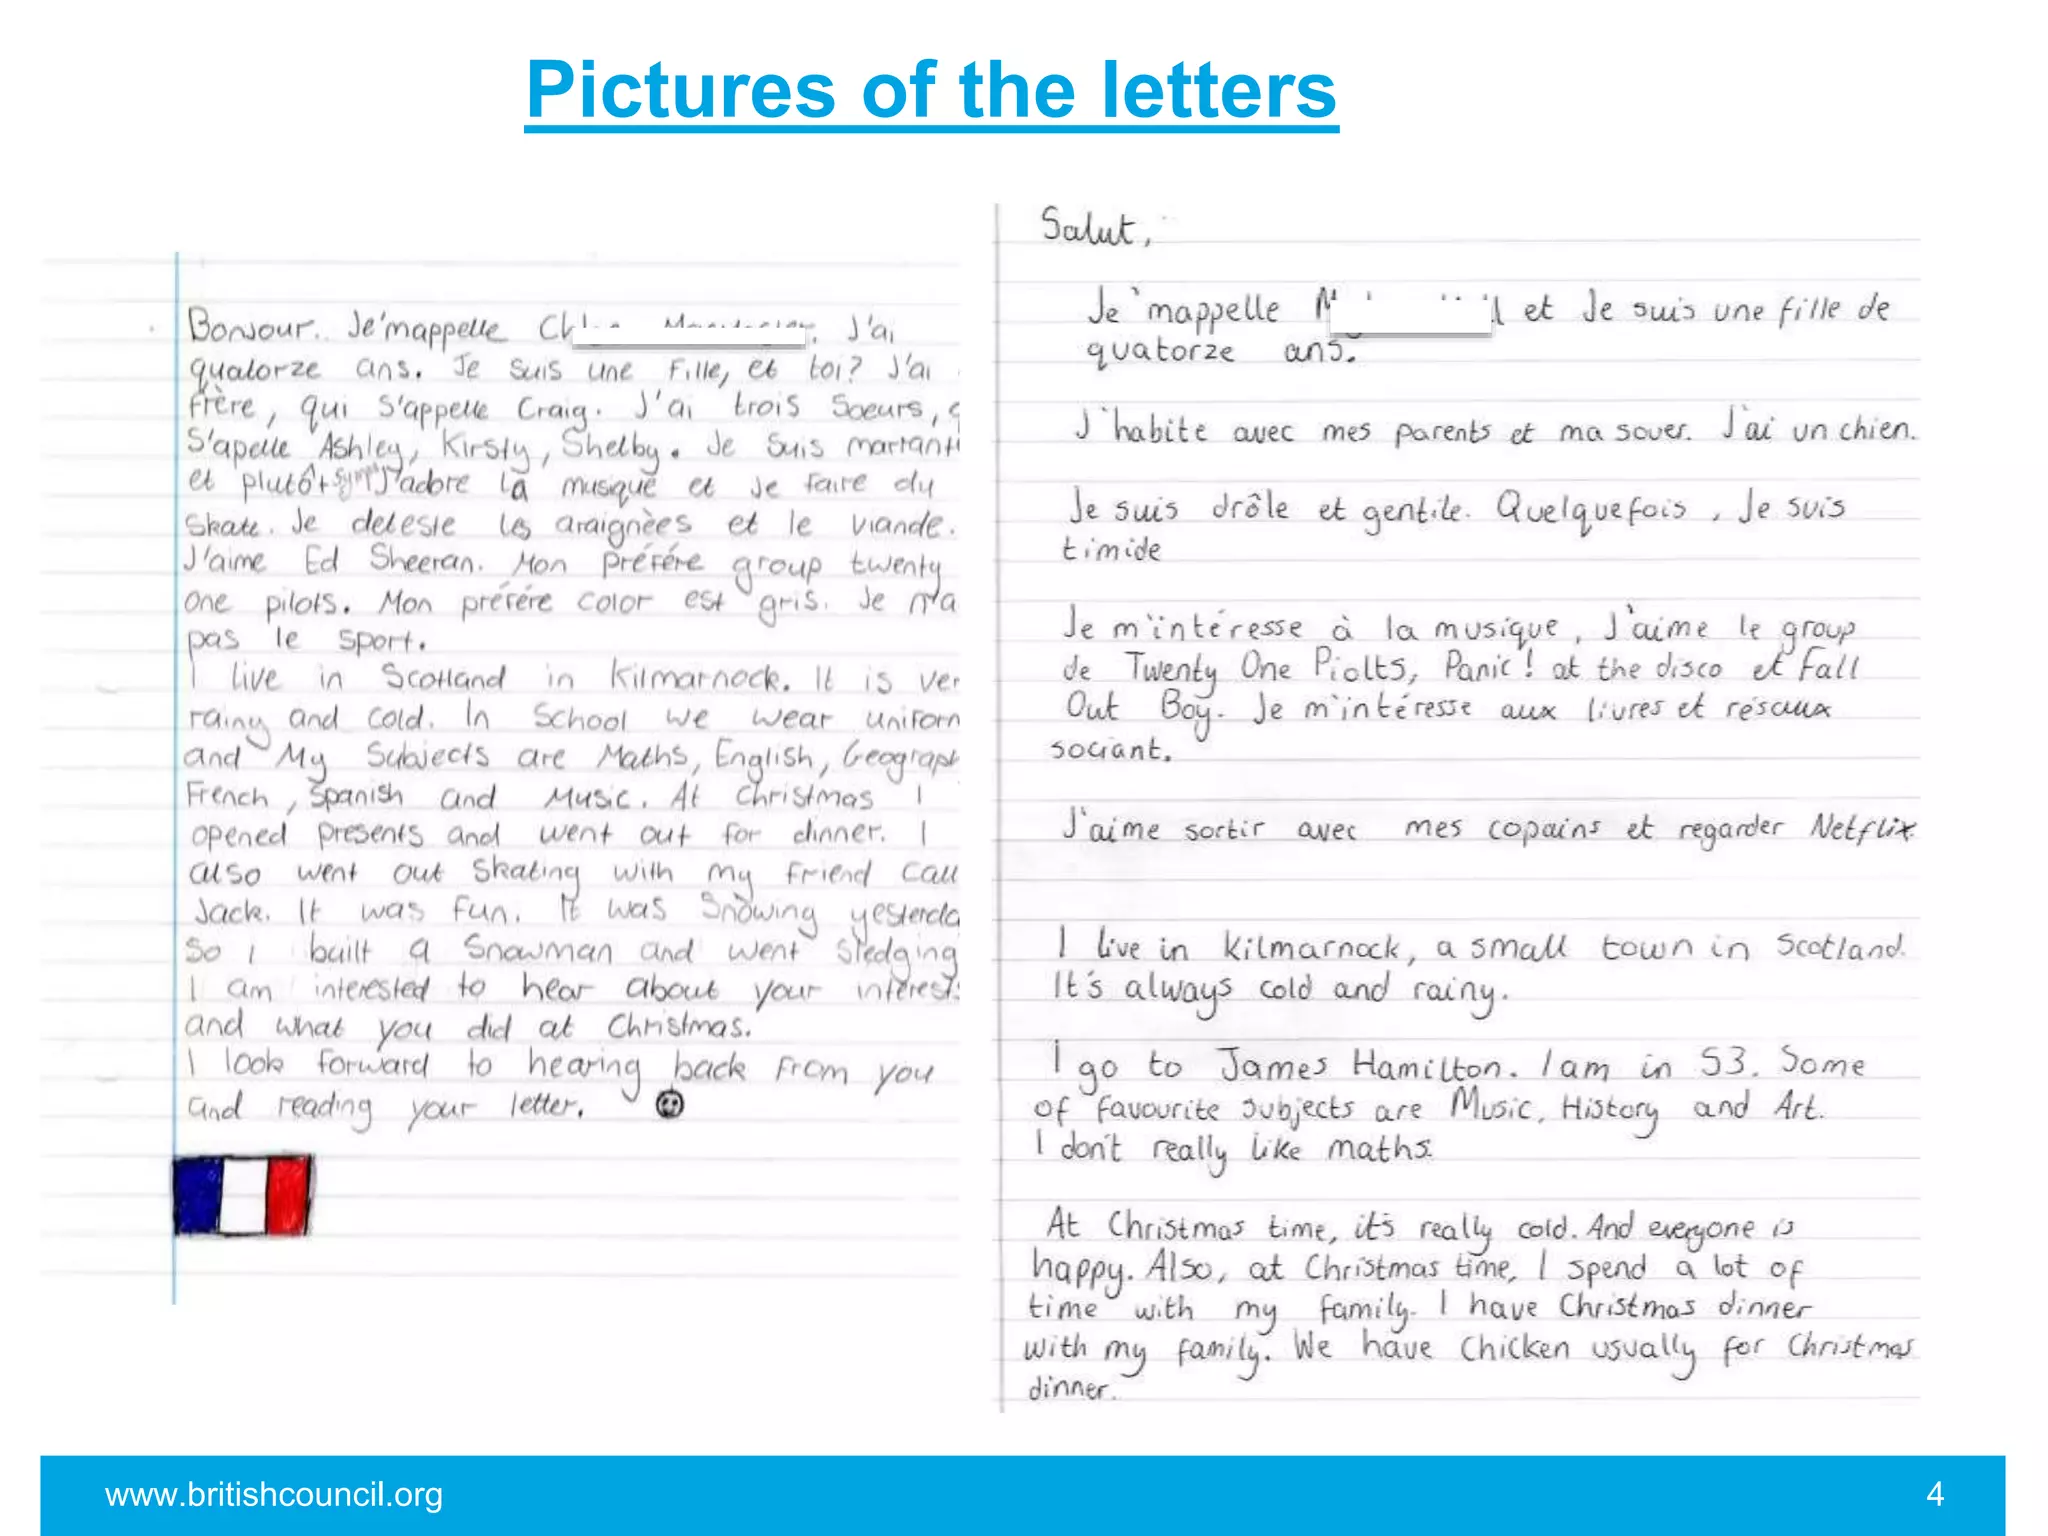 Pictures of the letters
Bonjour. Je'mappelle J'ai
quatorze ans. Je suis une fille, et toi? J'ai
frère, qui s'appelle Craig. J'ai trois soeurs,
s'apelle Ashley, Kirsty, Shelby. Je suis marrant
et plutôt J'adore la musique et je faire du
skate. Je deteste les araignèes et le viande.
J'aime Ed Sheeran. Mon préfére group twenty
one pilots. Mon préfére color est gris. Je
pas le sport.
I live in Scotland in Kilmarnock. It is
rainy and cold. In School we wear
and My Subjects are Maths, English,
French, Spanish and Music. At Christmas I
opened presents and went out for dinner. I
also went out skating with my friend
Jack. It was fun. It was Snowing
So I built a Snowman and went sledging
I am interested to hear about your
and what you did at Christmas.
I look forward to hearing back from you
and reading your letter.
Salut,
Je'mappelle et Je suis une fille de
quatorze ans.
J'habite avec mes parents et ma souer. J'ai un chien.
Je suis drôle et gentile. Quelquefois, Je suis
timide
Je m'intéresse à la musique, J'aime le group
de Twenty One Piolts, Panic! at the disco et Fall
Out Boy. Je m'intéresse aux livres et résaux
sociant.
J'aime sortir avec mes copains et regarder Netflix.
I live in Kilmarnock, a small town in Scotland.
It's always cold and rainy.
I go to James Hamilton. I am in S3. Some
of favourite subjects are Music, History and Art.
I don't really like maths.
At Christmas time, it's really cold. And everyone is
happy. Also, at Christmas time, I spend a lot of
time with my family. I have Christmas dinner
with my family. We have Chicken usually for Christmas
dinner.
www.britishcouncil.org
4